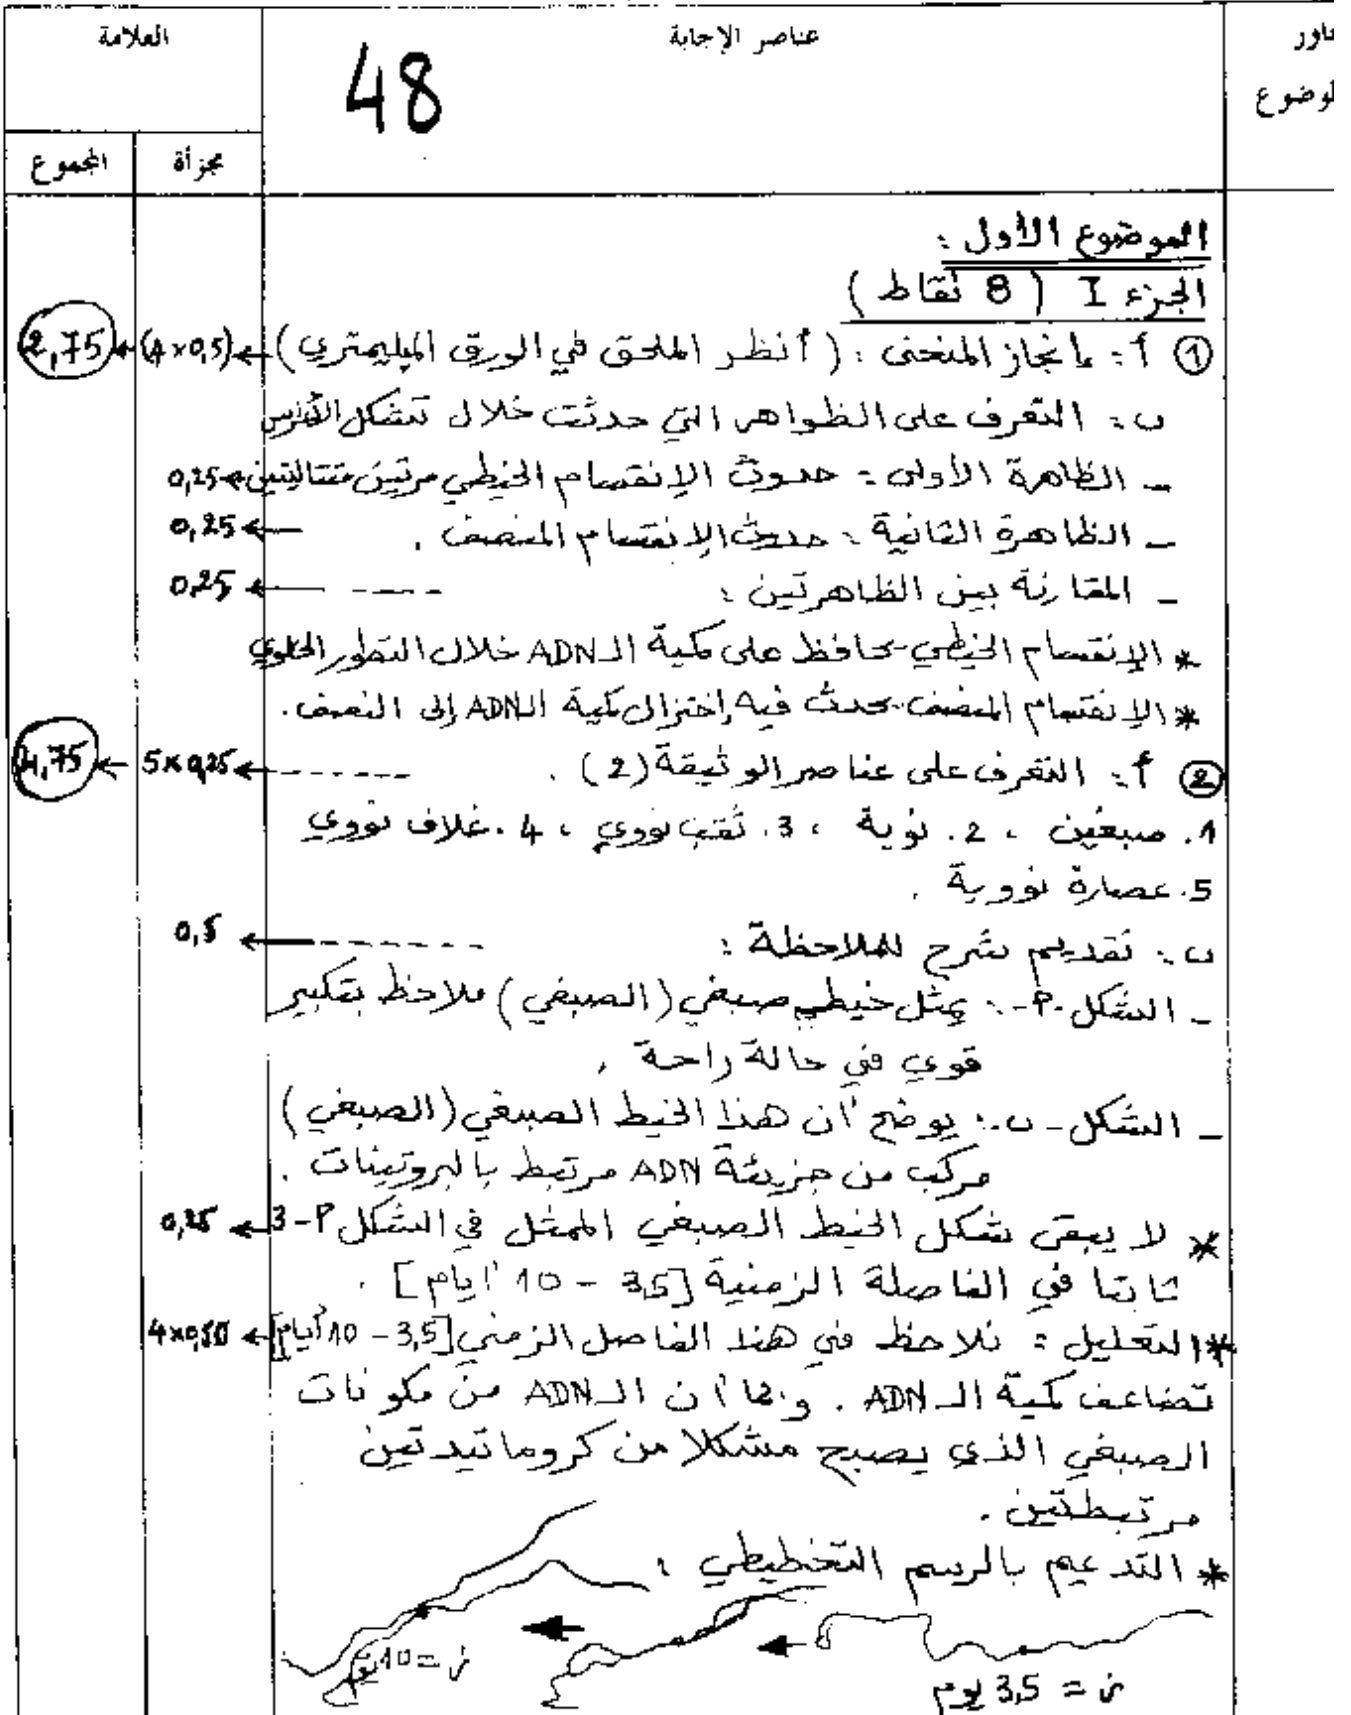 العلامة
عناصر الإجابة
محاور
الموضوع
48
المجموع
مجزأة
الموضوع الأول :
الجزء I ( 8 نقاط )
① أ : إنجاز المنحنى : ( أنظر الملحق في الورق الميليمتري ) ← (4×0,5) ← 2,75
ب : التعرف على الظواهر التي حدثت خلال تشكل
– الظاهرة الأولى : حدوث الإنقسام الخيطي مرتين متتاليتين ← 0,25
– الظاهرة الثانية : حدوث الإنقسام المنصف . ← 0,25
– المقارنة بين الظاهرتين : ---- ← 0,25
* الإنقسام الخيطي يحافظ على كمية الـ ADN خلال التطور الخلوي
* الإنقسام المنصف يحدث فيه إختزال كمية الـ ADN إلى النصف .
② أ : التعرف على عناصر الوثيقة (2) . ------ ← 5×0,25 ← 4,75
1. صبغين ، 2. نوية ، 3. ثقب نووي ، 4. غلاف نووي
5. عصارة نووية .
ب : تقديم شرح للملاحظة : ------ ← 0,5
– الشكل -أ- : يمثل خيط صبغي (الصبغي) ملاحظ بتكبير
قوي في حالة راحة .
– الشكل - ب - : يوضح أن هذا الخيط الصبغي (الصبغي)
مركب من جزيئة ADN مرتبط بالبروتينات .
* لا يبقى شكل الخيط الصبغي الممثل في الشكل 3-أ ← 0,25
ثابتا في الفاصلة الزمنية [3,5 - 10 أيام] .
* التعليل : نلاحظ في هذا الفاصل الزمني [3,5 - 10 أيام] ← 4×0,50
تضاعف كمية الـ ADN . وبما أن الـ ADN من مكونات
الصبغي الذي يصبح مشكلا من كروماتيدتين
مرتبطتين .
* التدعيم بالرسم التخطيطي :
ز = 3,5 يوم
ز = 10